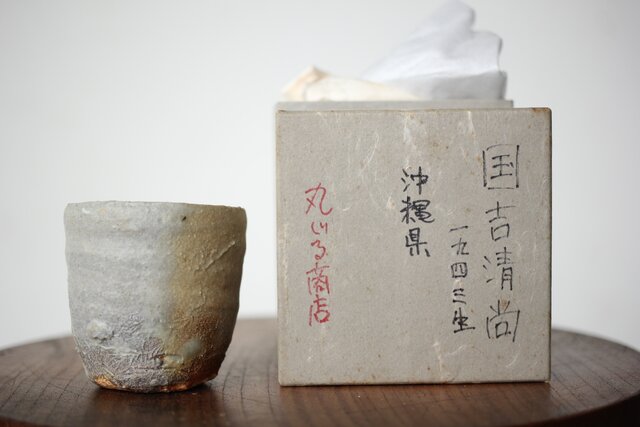 国吉清尚
一九四三生
沖縄県
丸いる商店